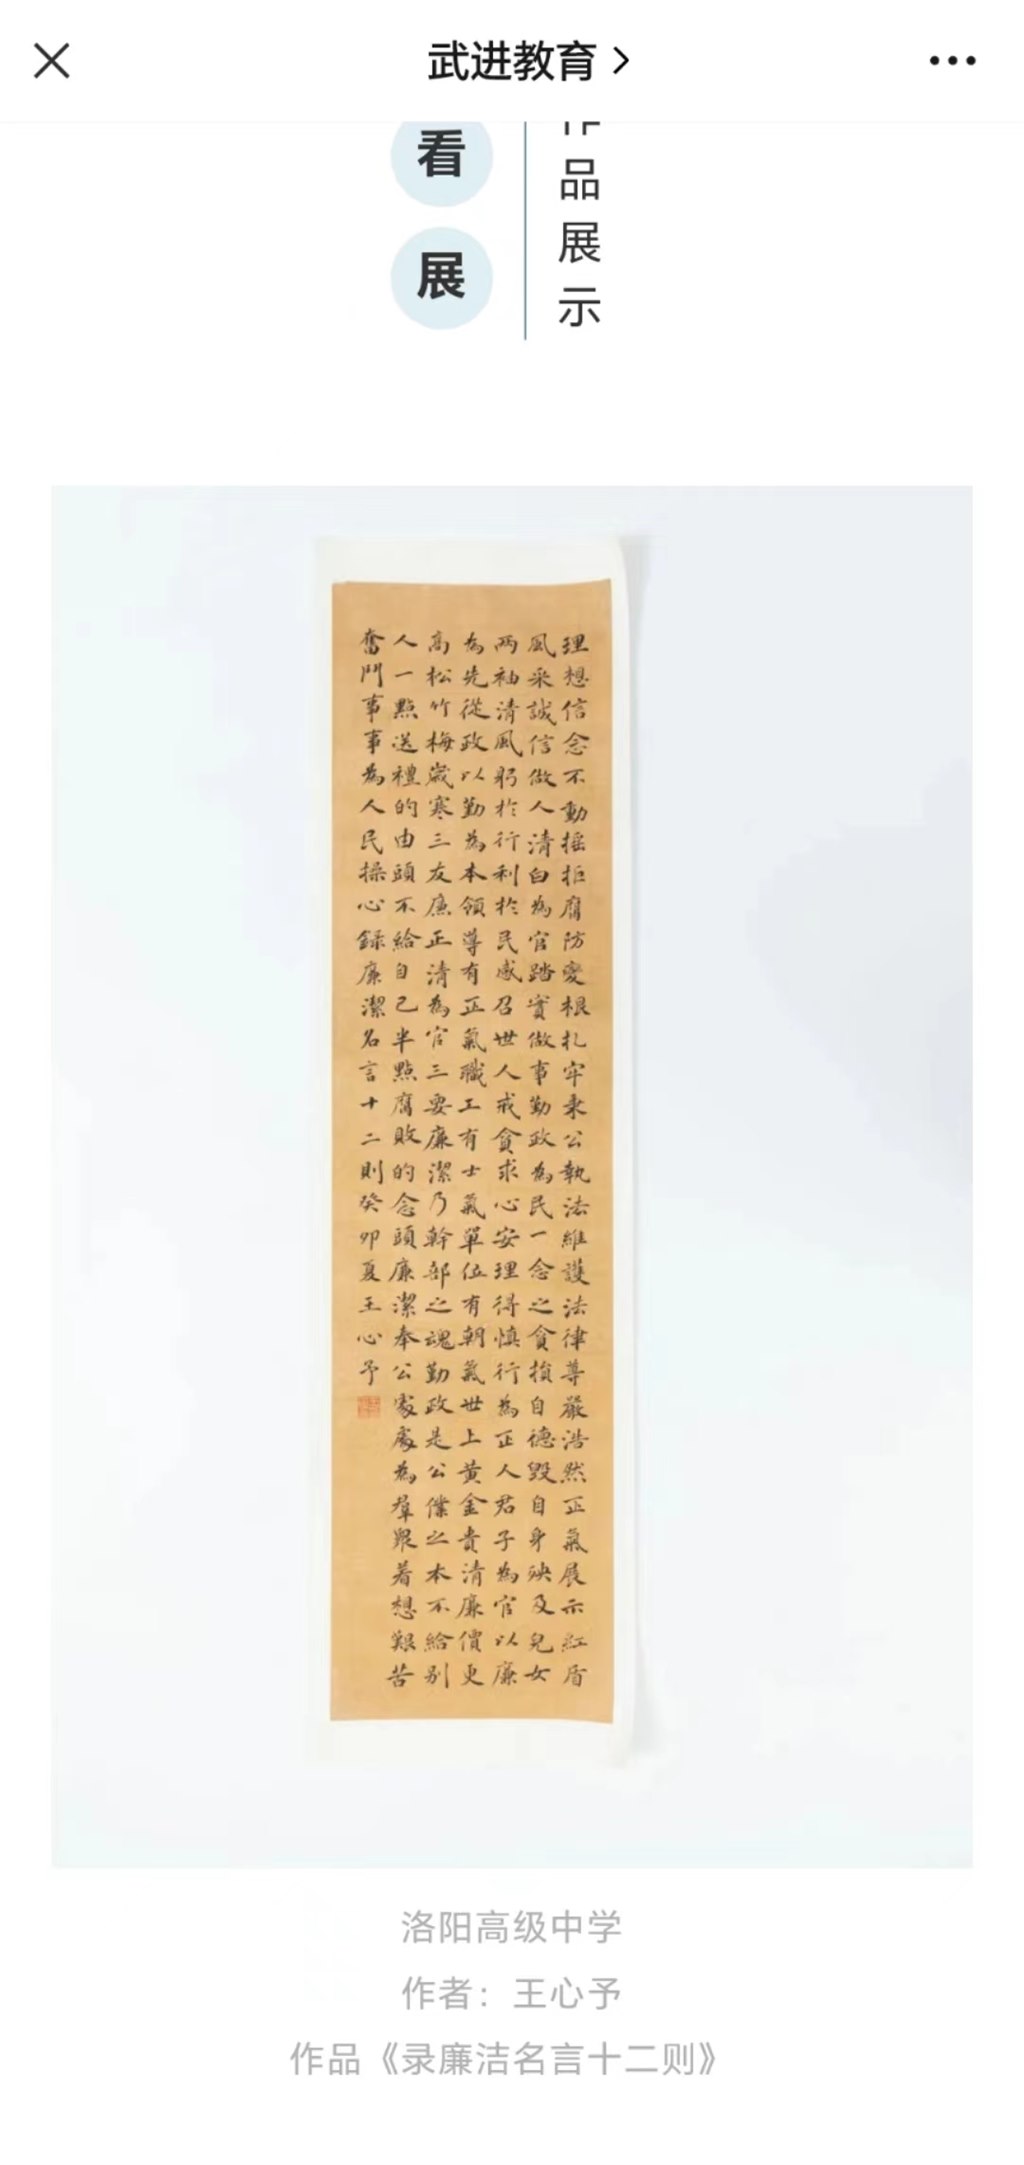 武进教育
看展
作品展示
理想信念不動摇拒腐防變根扎牢秉公執法維護法律尊嚴浩然正氣展示紅盾
風采誠信做人清白為官踏實做事勤政為民一念之貪損自德毀自身殃及兒女
两袖清風躬於行利於民感召世人戒貪求心安理得慎行為正人君子為官以廉
為先從政以勤為本領導有正氣職工有士氣單位有朝氣世上黄金貴清廉價更
高松竹梅歲寒三友廉正清為官三要廉潔乃幹部之魂勤政是公僕之本不給别
人一點送禮的由頭不給自己半點腐敗的念頭廉潔奉公家處為羣眾着想艱苦
奮鬥事事為人民操心録廉潔名言十二則癸卯夏王心予
洛阳高级中学
作者：王心予
作品《录廉洁名言十二则》